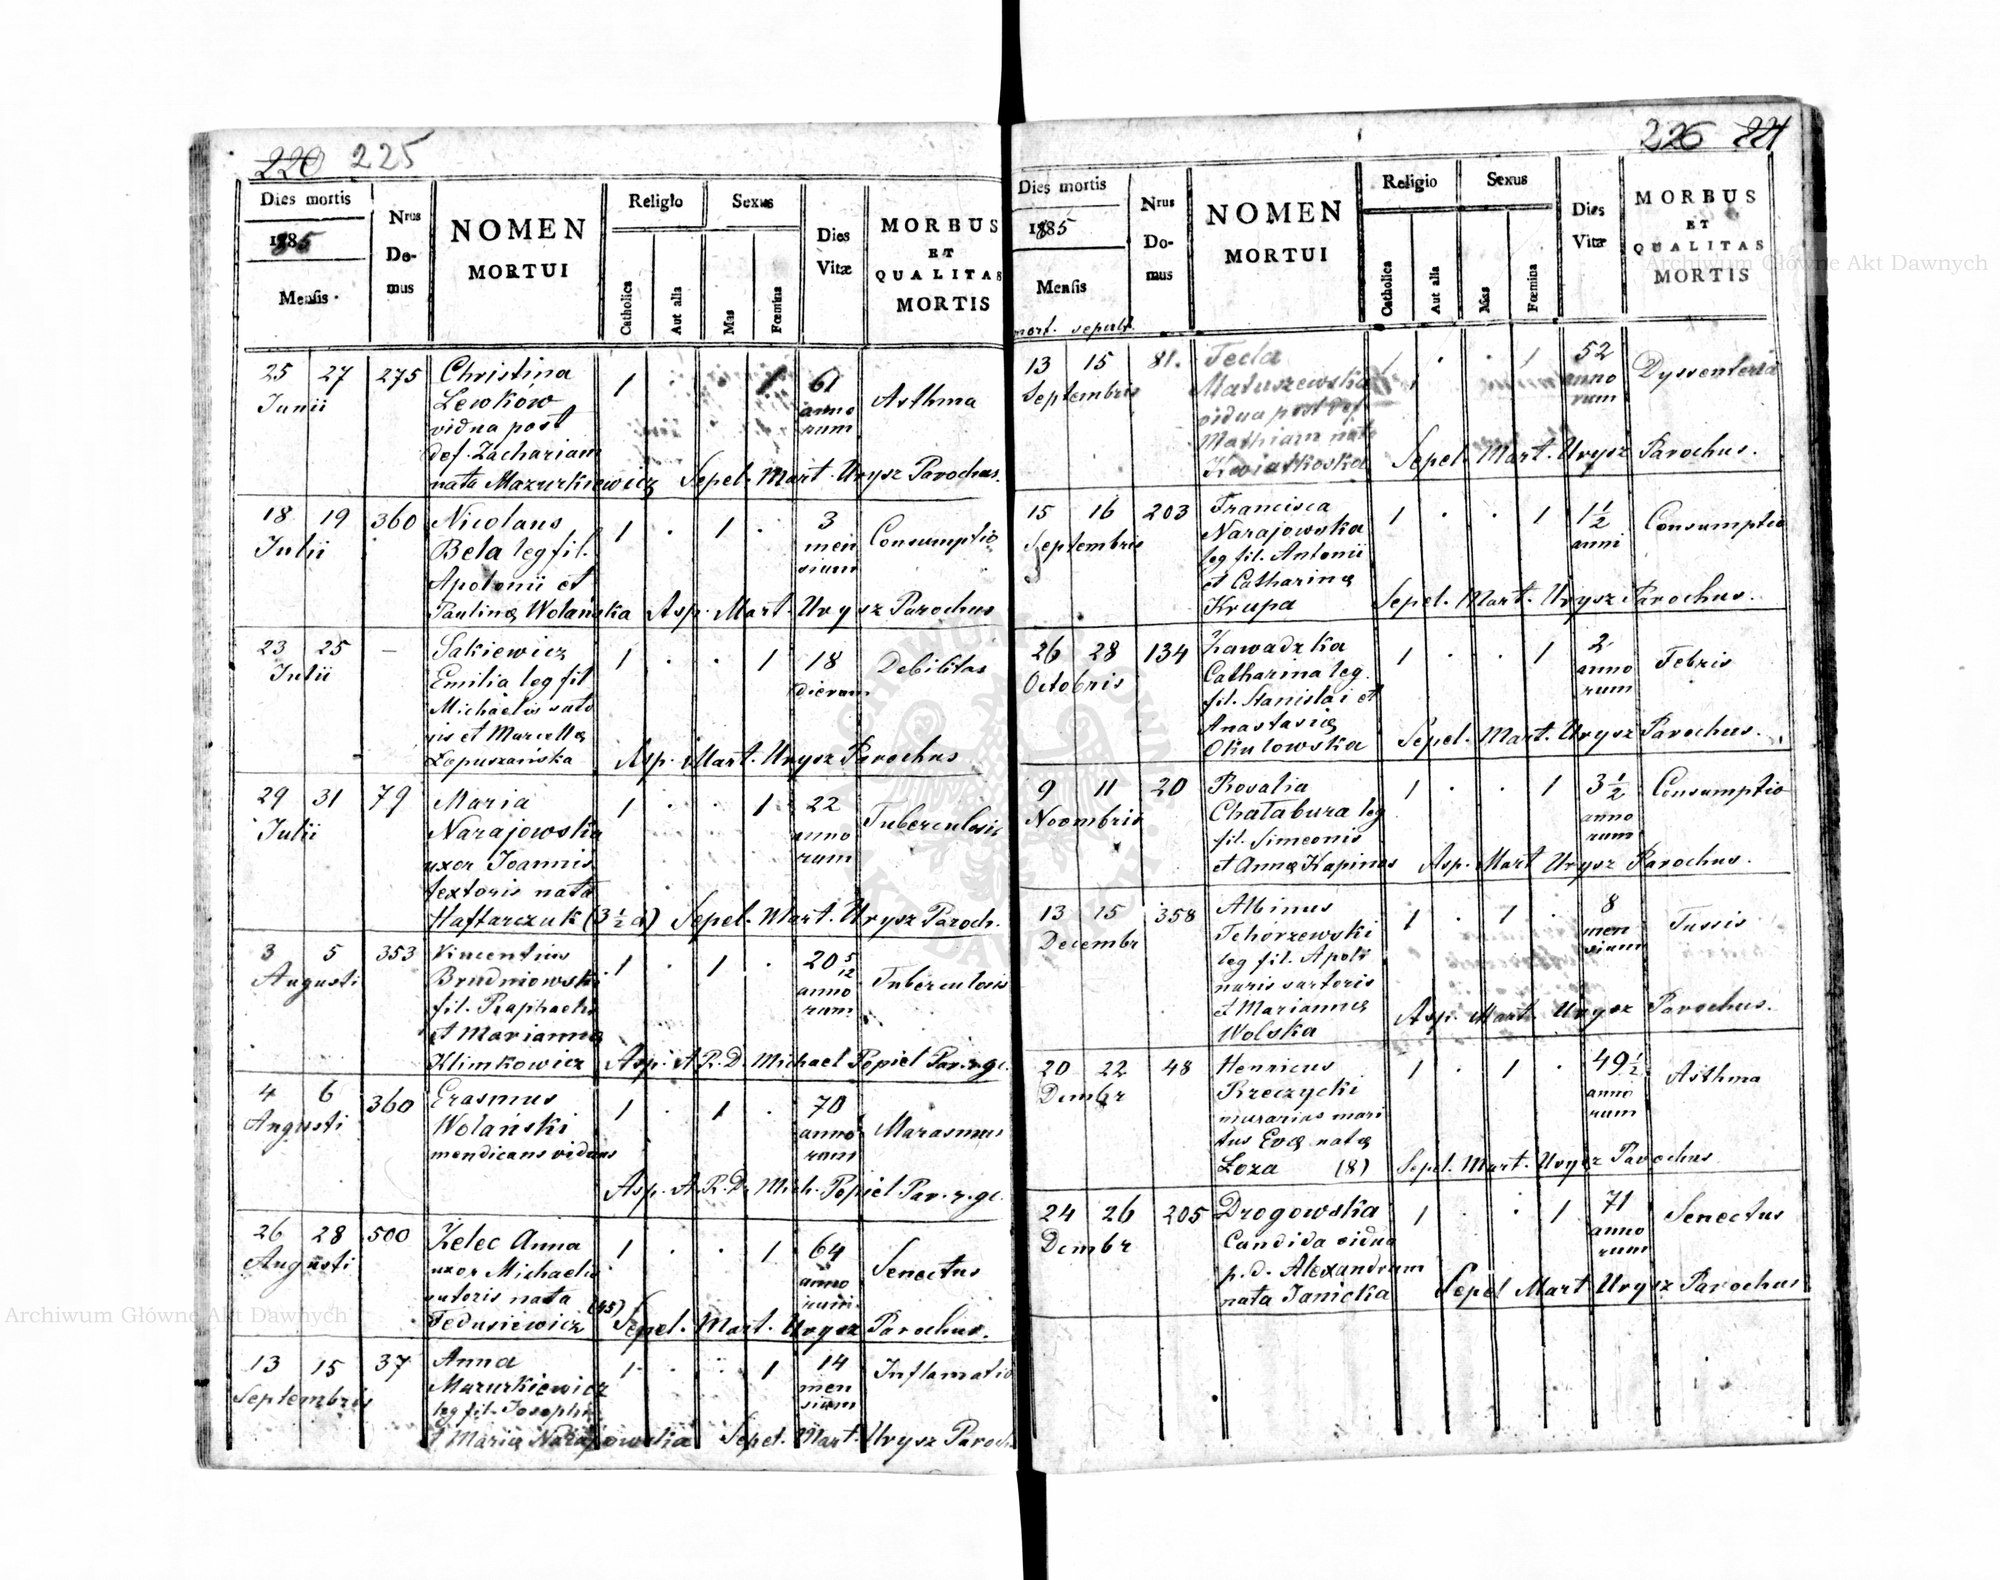 220 225
Dies mortis
1885
Mensis
Nrus Domus
NOMEN
MORTUI
Religio
Catholica
Aut alia
Sexus
Mas
Fœmina
Dies Vitæ
MORBUS
ET
QUALITAS
MORTIS
25 27 275 Christina 1 1 61
Junii Lewków annorum Asthma
vidua post
def. Zachariam
nata Mazurkiewicz Sepel. Mart. Urysz Parochus.
18 19 360 Nicolaus 1 . 1 . 3
Julii Bela leg fil. mensium Consumptio
Apolonii et
Paulinæ Wolańska Asp. Mart. Urysz Parochus
23 25 — Sakiewicz 1 . . 1 18 Debilitas
Julii Emilia leg fil dierum
Michaelis suto
ris et Marcellæ
Łopuszańska Asp. Mart. Urysz Parochus
29 31 79 Maria 1 . . 1 22
Julii Narajowska annorum Tuberculosis
uxor Joannis
textoris nata
Haftarczuk (3 1/2 a) Sepel. Mart. Urysz Paroch.
3 5 353 Vincentius 1 . 1 . 20 5/12
Augusti Brudniowski annorum Tuberculosis
fil. Raphaelis
et Mariannæ
Klimkowicz Asp. A.R.D. Michael Popiel Par. r. gc.
4 6 360 Erasmus 1 . 1 . 70
Augusti Wolański annorum Marasmus
mendicans viduus
Asp. A.R.D. Mich. Popiel Par. r. gc.
26 28 500 Zelec Anna 1 . . 1 64
Augusti uxor Michaelis annorum Senectus
sutoris nata
Fedusiewicz (45) Sepel. Mart. Urysz Parochus.
13 15 37 Anna 1 . . 1 14 Inflamatio
Septembris Mazurkiewicz mensium
leg fil. Josephi
et Mariæ Narajowska Sepel. Mart. Urysz Paroch.
226 221
Dies mortis
1885
Mensis
mort. sepult.
Nrus Domus
NOMEN
MORTUI
Religio
Catholica
Aut alia
Sexus
Mas
Fœmina
Dies Vitæ
MORBUS
ET
QUALITAS
MORTIS
13 15 81. Tecla 1 . . 1 52 Dyssenteria
Septembris Matuszewska annorum
vidua post def.
Mathiam nata
Kwiatkoska Sepel. Mart. Urysz Parochus.
15 16 203 Francisca 1 . . 1 1 1/2 Consumptio
Septembris Narajowska anni
leg fil. Antonii
et Catharinæ
Krupa Sepel. Mart. Urysz Parochus.
26 28 134 Zawadzka 1 . . 1 2 Febris
Octobris Catharina leg. annorum
fil. Stanislai et
Anastasiæ
Okulowska Sepel. Mart. Urysz Parochus.
9 11 20 Rosalia 1 . . 1 3 1/2 Consumptio
Noembris Chatabura leg annorum
fil. Simeonis
et Annæ Kapinos Asp. Mart Urysz Parochus.
13 15 358 Albinus 1 . 1 . 8 Tussis
Decembr Tchorzewski mensium
leg fil. Apoli
naris sartoris
et Mariannæ
Wolska Asp. Mart. Urysz Parochus.
20 22 48 Henricus 1 . 1 . 49 1/2 Asthma
Dembr Rzeczycki annorum
murarius mari
tus Evæ natæ
Łoza (8) Sepel. Mart. Urysz Parochus
24 26 205 Drogowska 1 . . 1 71 Senectus
Dembr Candida vidua annorum
p. d. Alexandrum
nata Janicka Sepel Mart Urysz Parochus
Archiwum Główne Akt Dawnych
Archiwum Główne Akt Dawnych